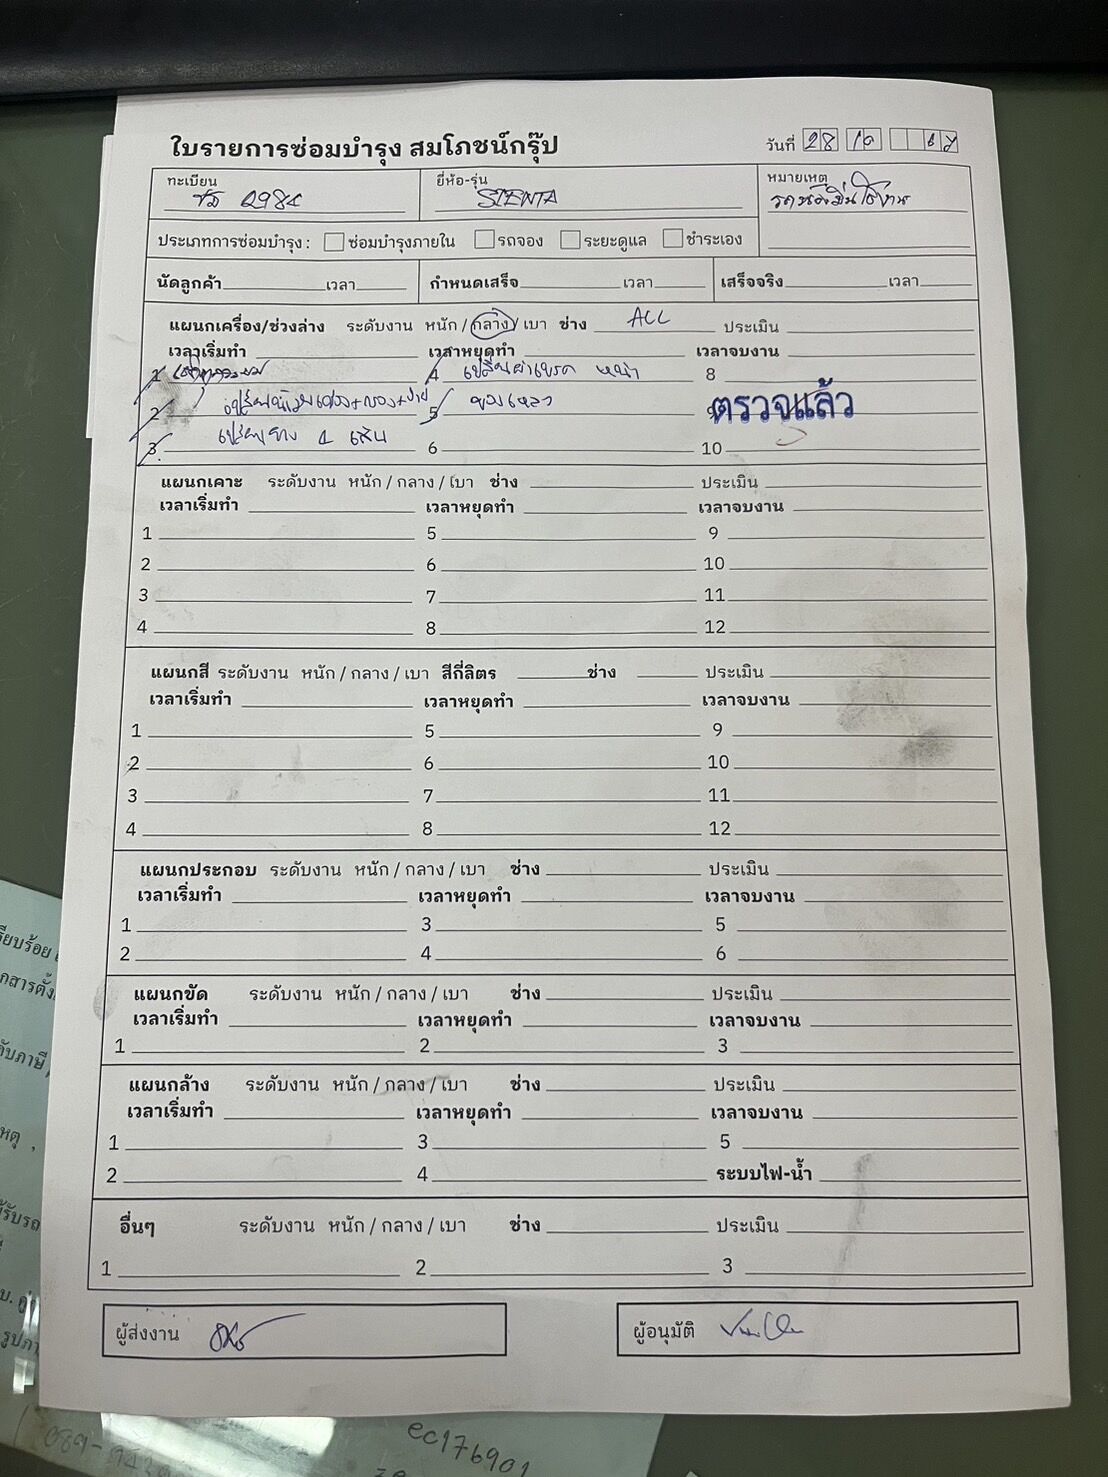 ใบรายการซ่อมบำรุง สมโภชน์กรุ๊ป
วันที่ 28 10 67
ทะเบียน 2984
ยี่ห้อ-รุ่น SIENTA
หมายเหตุ
ประเภทการซ่อมบำรุง : ซ่อมบำรุงภายใน รถจอง ระยะดูแล ชำระเอง
นัดลูกค้า เวลา กำหนดเสร็จ เวลา เสร็จจริง เวลา
แผนกเครื่อง/ช่วงล่าง ระดับงาน หนัก / กลาง / เบา ช่าง ALL ประเมิน
เวลาเริ่มทำ เวลาหยุดทำ เวลาจบงาน
1 4 เปลี่ยนผ้าเบรค หน้า 8
2 5 ของเหลว 9 ตรวจแล้ว
3 เปลี่ยนยาง 4 เส้น 6 10
แผนกเคาะ ระดับงาน หนัก / กลาง / เบา ช่าง ประเมิน
เวลาเริ่มทำ เวลาหยุดทำ เวลาจบงาน
1 5 9
2 6 10
3 7 11
4 8 12
แผนกสี ระดับงาน หนัก / กลาง / เบา สีกี่ลิตร ช่าง ประเมิน
เวลาเริ่มทำ เวลาหยุดทำ เวลาจบงาน
1 5 9
2 6 10
3 7 11
4 8 12
แผนกประกอบ ระดับงาน หนัก / กลาง / เบา ช่าง ประเมิน
เวลาเริ่มทำ เวลาหยุดทำ เวลาจบงาน
1 3 5
2 4 6
แผนกขัด ระดับงาน หนัก / กลาง / เบา ช่าง ประเมิน
เวลาเริ่มทำ เวลาหยุดทำ เวลาจบงาน
1 2 3
แผนกล้าง ระดับงาน หนัก / กลาง / เบา ช่าง ประเมิน
เวลาเริ่มทำ เวลาหยุดทำ เวลาจบงาน
1 3 5
2 4 ระบบไฟ-น้ำ
อื่นๆ ระดับงาน หนัก / กลาง / เบา ช่าง ประเมิน
1 2 3
ผู้ส่งงาน
ผู้อนุมัติ
ec176901